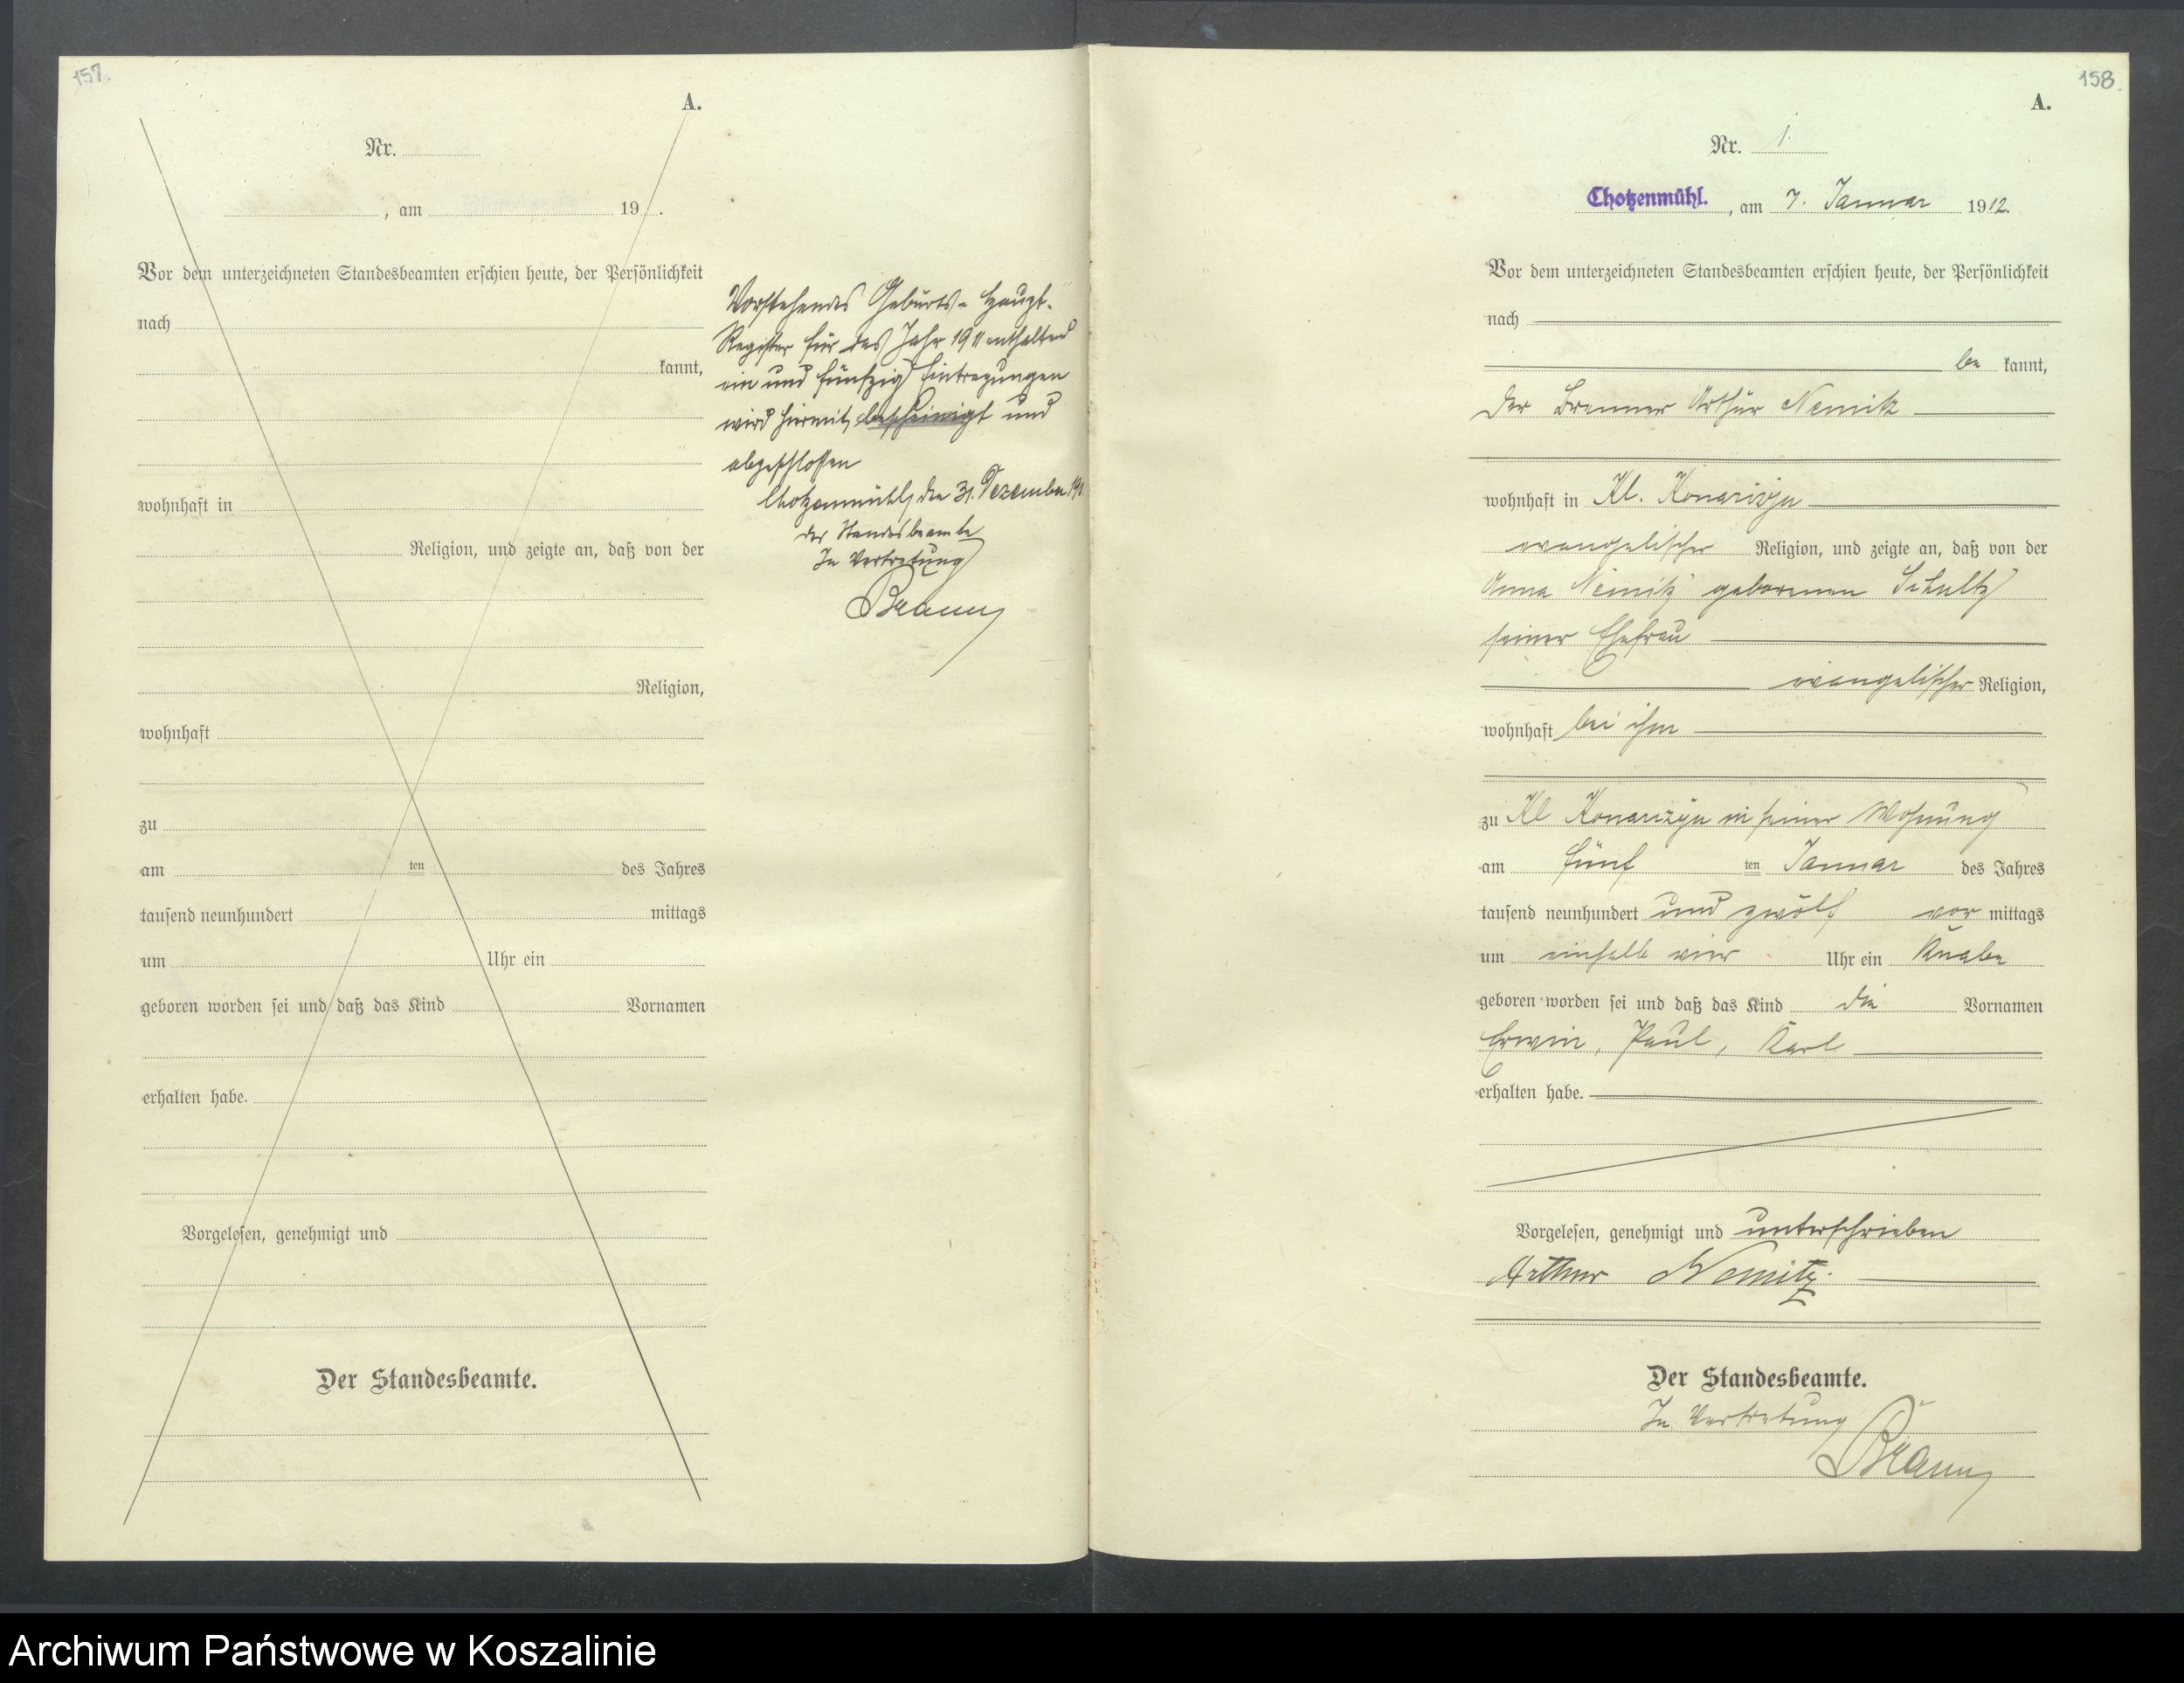 157.
A.
Nr.
, am 19 .
Vor dem unterzeichneten Standesbeamten erschien heute, der Persönlichkeit
nach
kannt,
wohnhaft in
Religion, und zeigte an, daß von der
Religion,
wohnhaft
zu
am ten des Jahres
tausend neunhundert mittags
um Uhr ein
geboren worden sei und daß das Kind Vornamen
erhalten habe.
Vorgelesen, genehmigt und
Der Standesbeamte.
Vorstehendes Geburts-Haupt-
Register für das Jahr 1911 enthaltend
ein und fünfzig Eintragungen
wird hiermit bescheinigt und
abgeschlossen
Chotzenmühl, den 31. Dezember 1911
Der Standesbeamte
In Vertretung
Braun
158.
A.
Nr. 1.
Chotzenmühl. , am 7. Januar 1912.
Vor dem unterzeichneten Standesbeamten erschien heute, der Persönlichkeit
nach
be kannt,
der Brenner Arthur Nemitz
wohnhaft in Kl. Konarizyn
evangelischer Religion, und zeigte an, daß von der
Anna Nemitz geborenen Schultz
seiner Ehefrau
evangelischer Religion,
wohnhaft bei ihm
zu Kl Konarzyn in seiner Wohnung
am fünf ten Januar des Jahres
tausend neunhundert und zwölf vor mittags
um einhalb vier Uhr ein Knabe
geboren worden sei und daß das Kind die Vornamen
Erwin, Paul, Karl
erhalten habe.
Vorgelesen, genehmigt und unterschrieben
Arthur Nemitz.
Der Standesbeamte.
In Vertretung
Braun
Archiwum Państwowe w Koszalinie